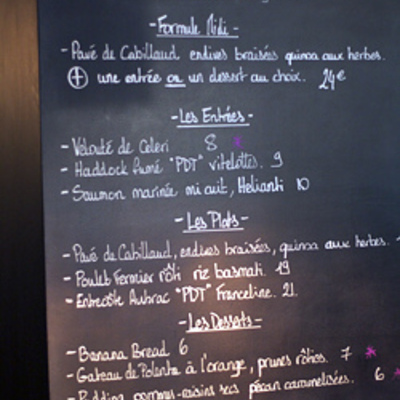 - Formule Midi -
- Pavé de Cabillaud endives braisées quinoa aux herbes.
+ une entrée ou un dessert au choix. 24€
- Les Entrées -
- Velouté de Céleri 8 *
- Haddock fumé "PDT" vitelottes. 9
- Saumon marinée mi cuit, Hélianti 10
- Les Plats -
- Pavé de Cabillaud, endives braisées, quinoa aux herbes.
- Poulet Fermier rôti riz basmati. 19
- Entrecôte Aubrac "PDT" Franceline. 21.
- Les Desserts -
- Banana Bread 6
- Gateau de Polenta à l'orange, prunes rôties. 7 *
- Pudding pommes-raisins secs pécan caramelisées. 6 *